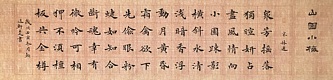 山園小梅
衆芳搖落
獨暄妍占
盡風情向
小園疎影
橫斜水清
淺暗香浮
動月黃昏
霜禽欲下
先偷眼粉
蝶如知合
斷魂幸有
微吟可相
狎不須檀
板共金樽